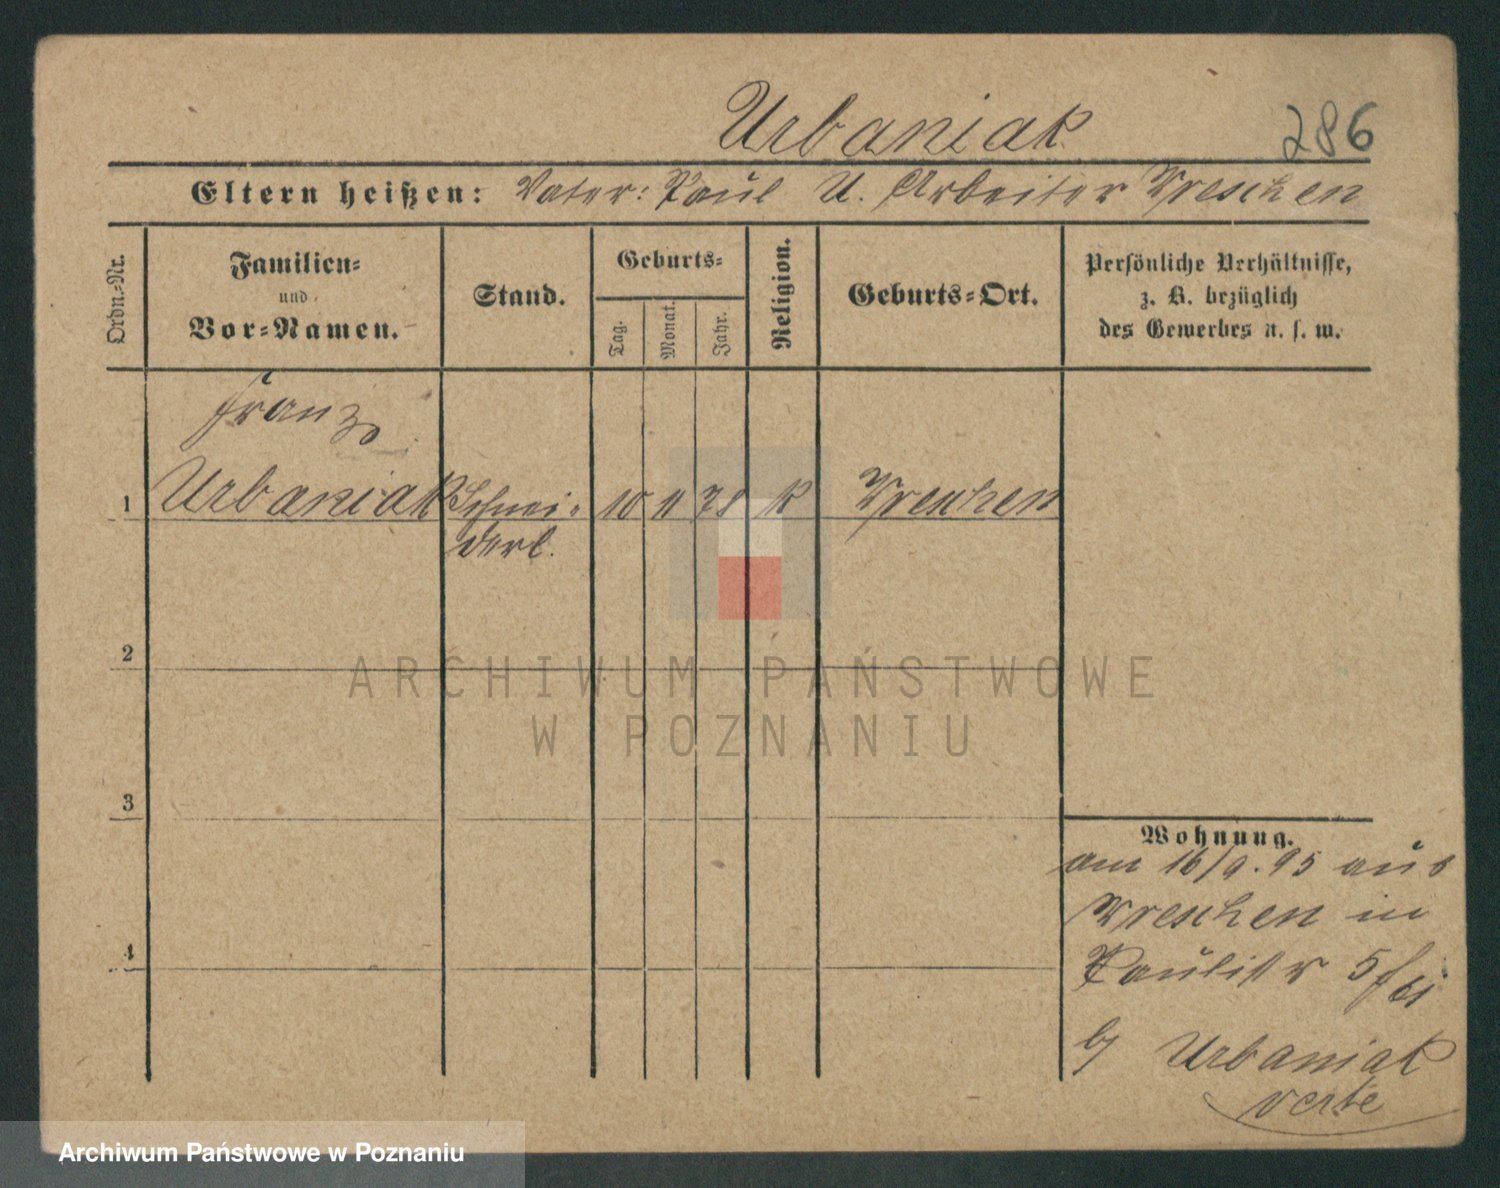 Urbaniak 286
Eltern heißen: Vater: Paul U. Arbeiter Wreschen
Ordn.-Nr.
Familien-
und
Vor-Namen.
Stand.
Geburts-
Tag.
Monat.
Jahr.
Religion.
Geburts-Ort.
Persönliche Verhältnisse,
z. B. bezüglich
des Gewerbes u. s. w.
Franz
1 Urbaniak Schnei- 10 11 78 K Wreschen
derl.
2
3
4
Wohnung.
am 16/9. 95 aus
Wreschen in
Paulistr 5
b/ Urbaniak
verte
ARCHIWUM PAŃSTWOWE
W POZNANIU
Archiwum Państwowe w Poznaniu